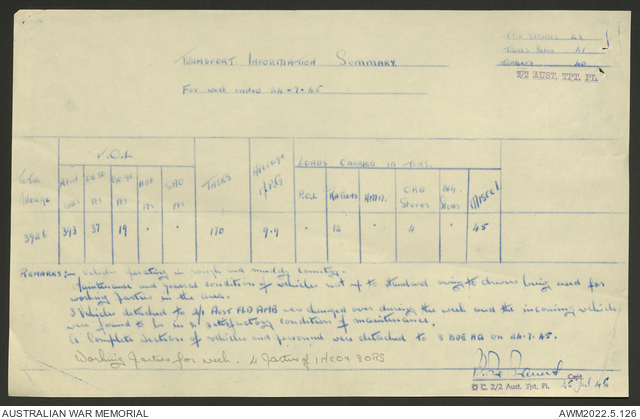 TRANSPORT INFORMATION SUMMARY
FOR WEEK ENDED 24-7-45
41
40
2/2 AUST. TPT. PL.
V.O.L
LOADS CARRIED IN TONS.
TOTAL MILEAGE
TASKS
AVERAGE M.P.G
P.O.L
RATIONS
AMMN.
ORD STORES
ENG. STORES
MISCEL
3926 393 37 19 - - - 170 9.9 - 12 - 4 - 45
REMARKS:- Vehicles operating in rough and muddy country.
Maintenance and general condition of vehicles not up to standard owing to drivers being used for
working parties in the area.
3 Vehicles detached to Aust FLD AMB were changed over during the week and the incoming vehicles
were found to be in satisfactory condition of maintenance.
A complete section of vehicles and personnel were detached to 8 BDE HQ on 24-7-45.
Working Parties for week. 4 parties of 1 NCO 8 ORS
Capt.
O C. 2/2 Aust. Tpt. Pl.
AUSTRALIAN WAR MEMORIAL
AWM2022.5.126